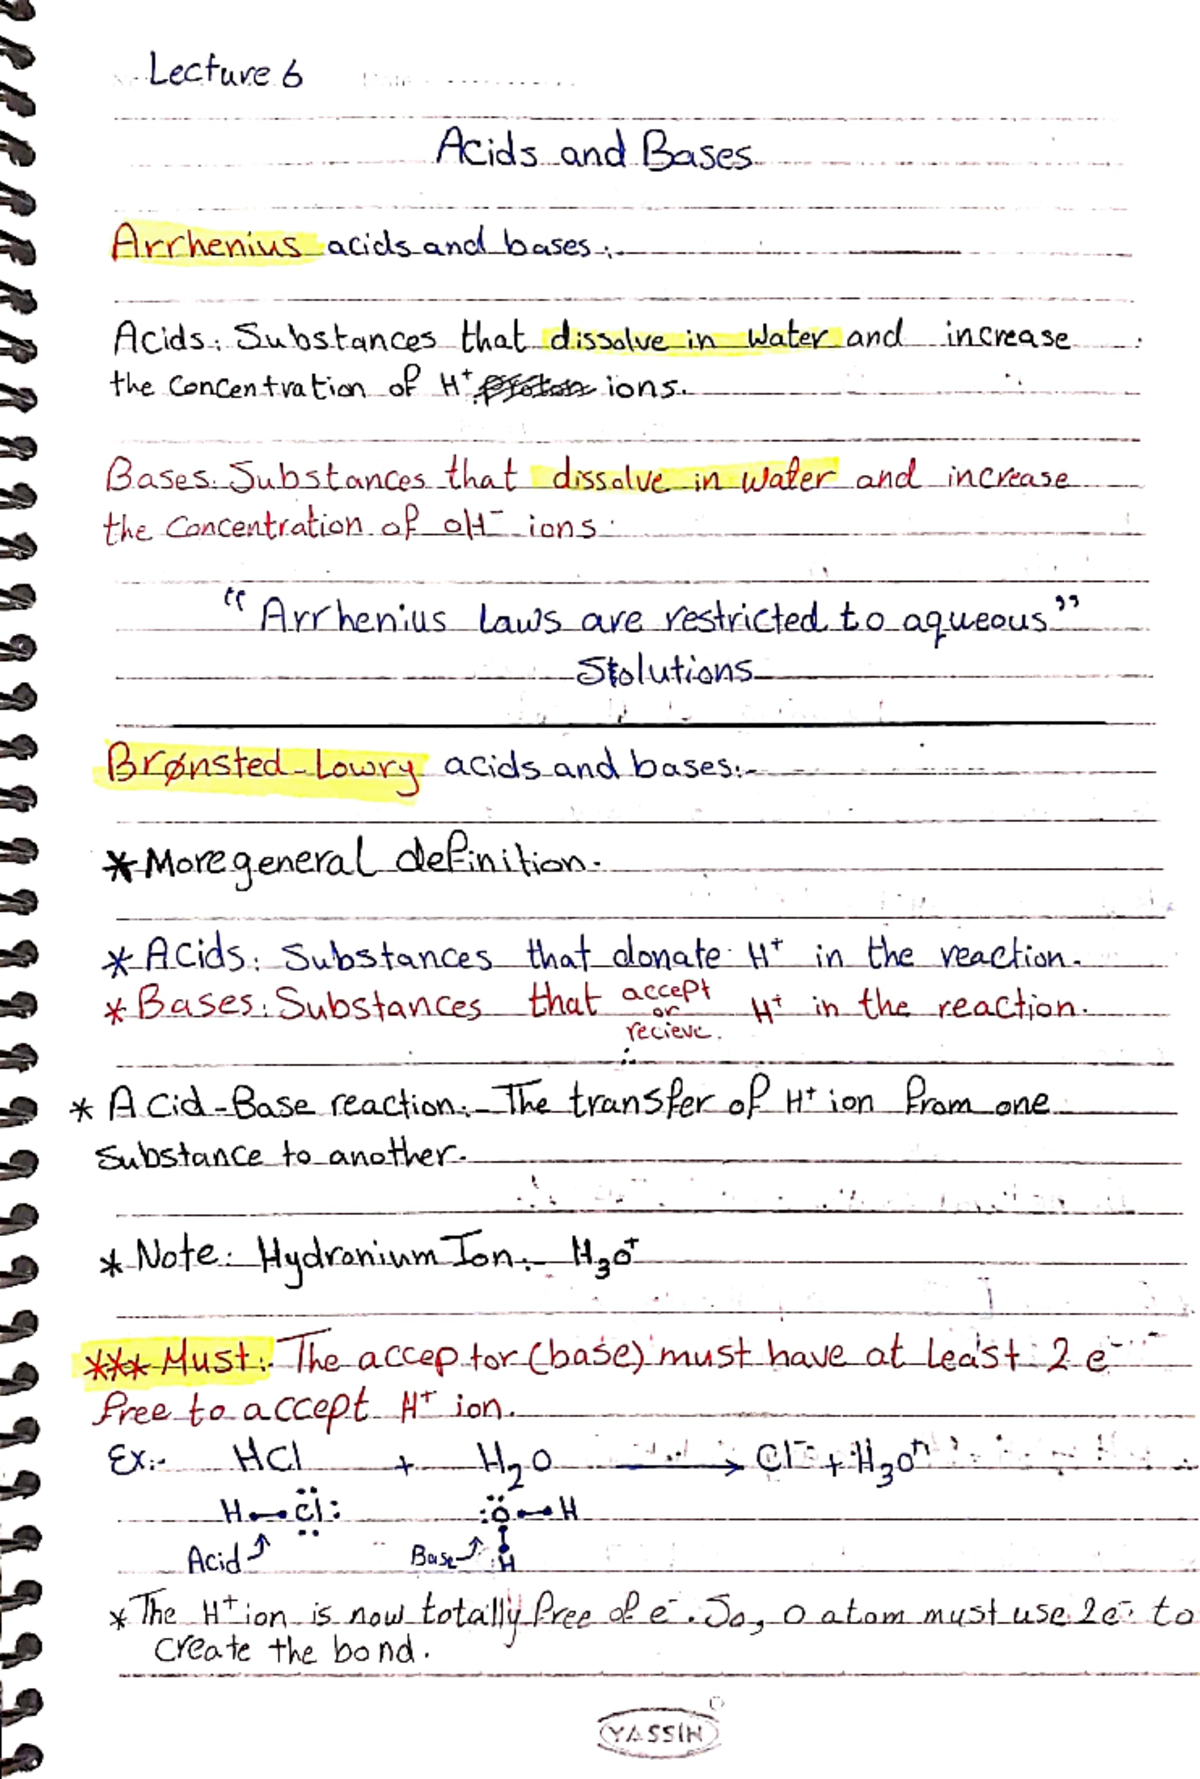 Lecture 6
Acids and Bases
Arrhenius acids and bases:-
Acids: Substances that dissolve in water and increase
the concentration of H⁺ ions.
Bases: Substances that dissolve in water and increase
the concentration of OH⁻ ions.
“Arrhenius Laws are restricted to aqueous”
Solutions
Brønsted-Lowry acids and bases:-
* More general definition.
* Acids: Substances that donate H⁺ in the reaction.
* Bases: Substances that accept or recieve. H⁺ in the reaction.
* Acid-Base reaction:- The transfer of H⁺ ion from one
substance to another.
* Note: Hydronium Ion:- H₃O⁺
*** Must: The acceptor (base) must have at least 2 e⁻
free to accept H⁺ ion.
Ex:- HCl + H₂O → Cl⁻ + H₃O⁺
H—Cl: :O—H
Acid Base H
* The H⁺ ion is now totally free of e⁻. So, O atom must use 2e⁻ to
create the bond.
YASSIN